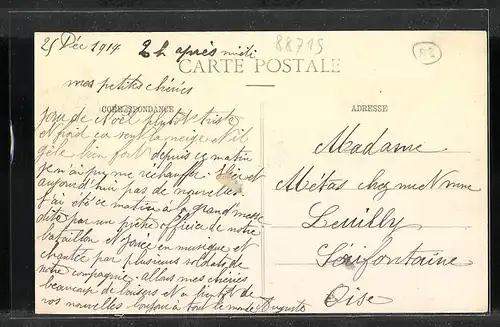 25 Déc 1914 2h après midi
88715
82
CARTE POSTALE
mes petites chéries
CORRESPONDANCE
ADRESSE
Jour de Noël plutôt triste
et froid ça sent la neige et il
gèle bien fort depuis ce matin
je n'ai pu me réchauffer. Hier et
aujourd'hui pas de nouvelles
J'ai été ce matin à la grand'messe
dite par un prêtre officier de notre
bataillon et en musique et
chantée par plusieurs soldats de
notre compagnie. allons mes chéries
beaucoup de baisers et à bientôt de
vos nouvelles bonjour à tout le monde Auguste
Madame
Métas chez
Sérifontaine
Oise